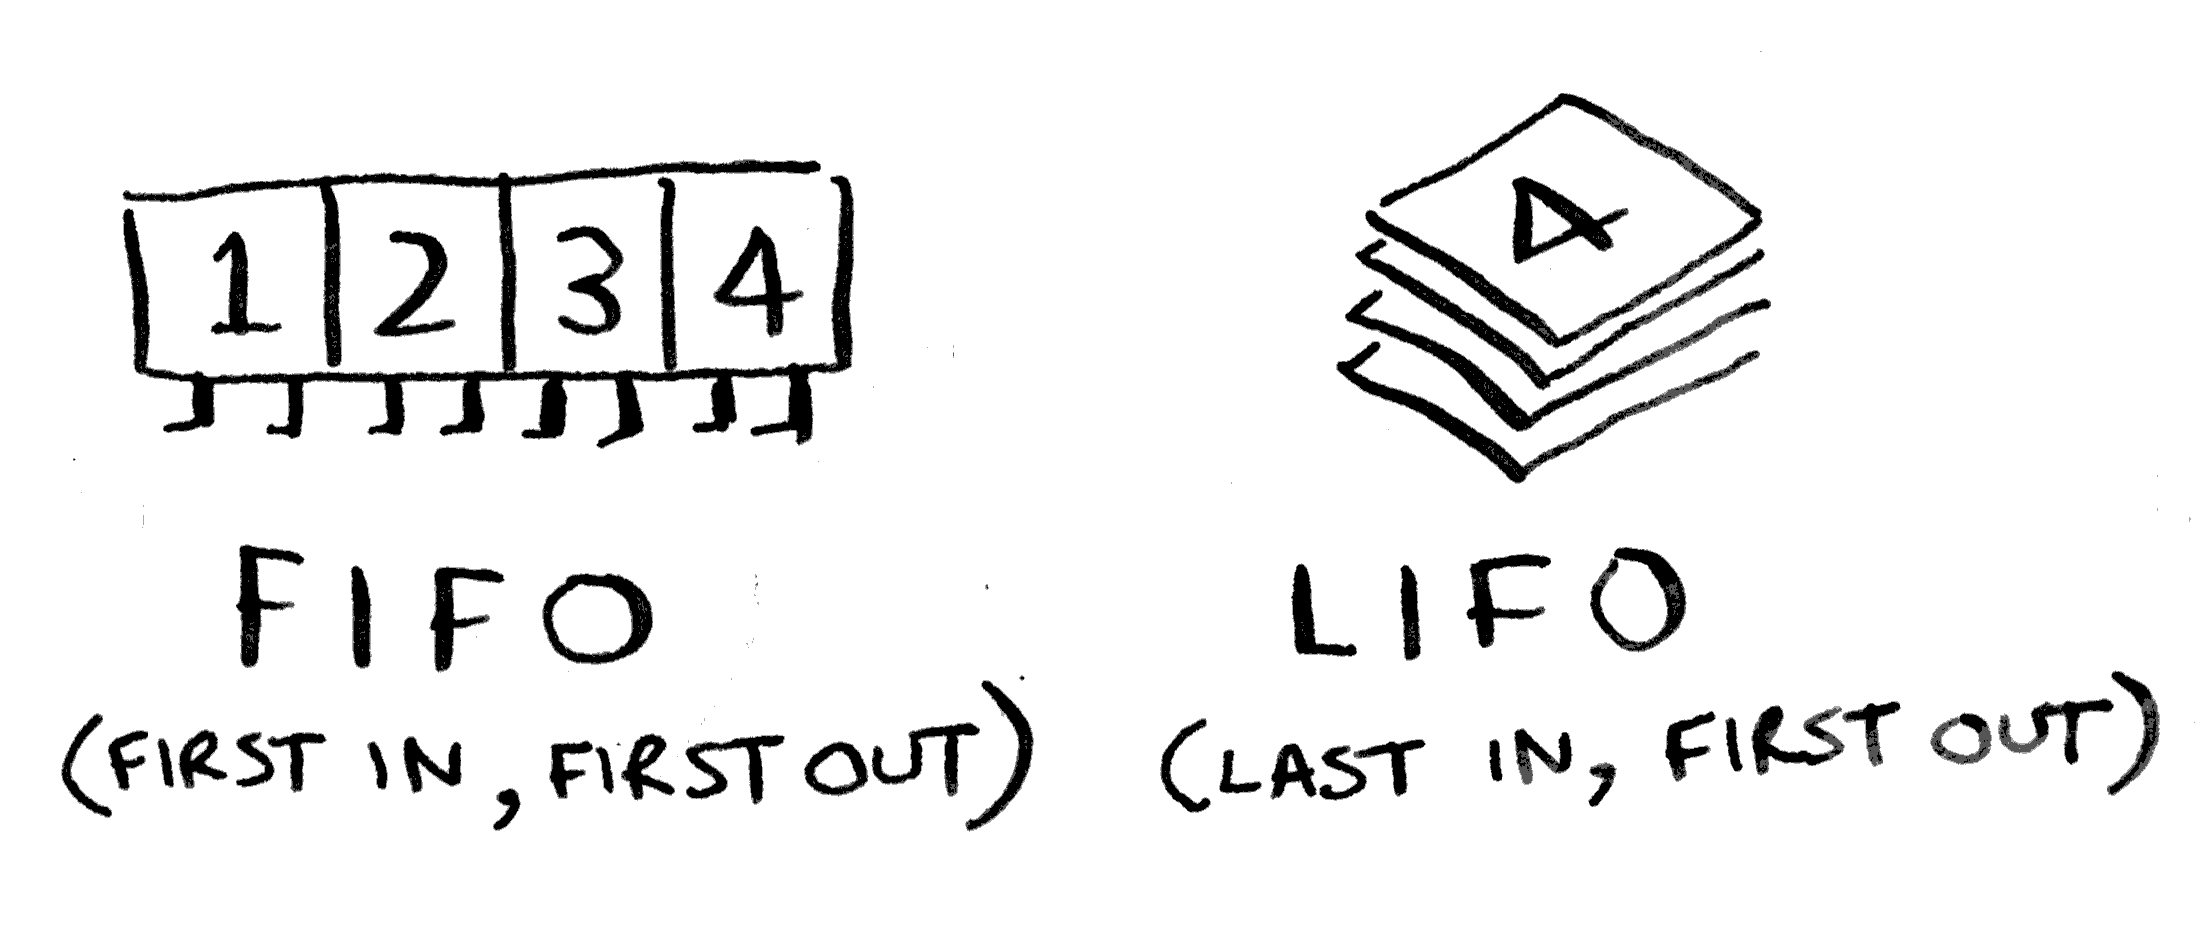 1 2 3 4
4
FIFO
(FIRST IN, FIRST OUT)
LIFO
(LAST IN, FIRST OUT)